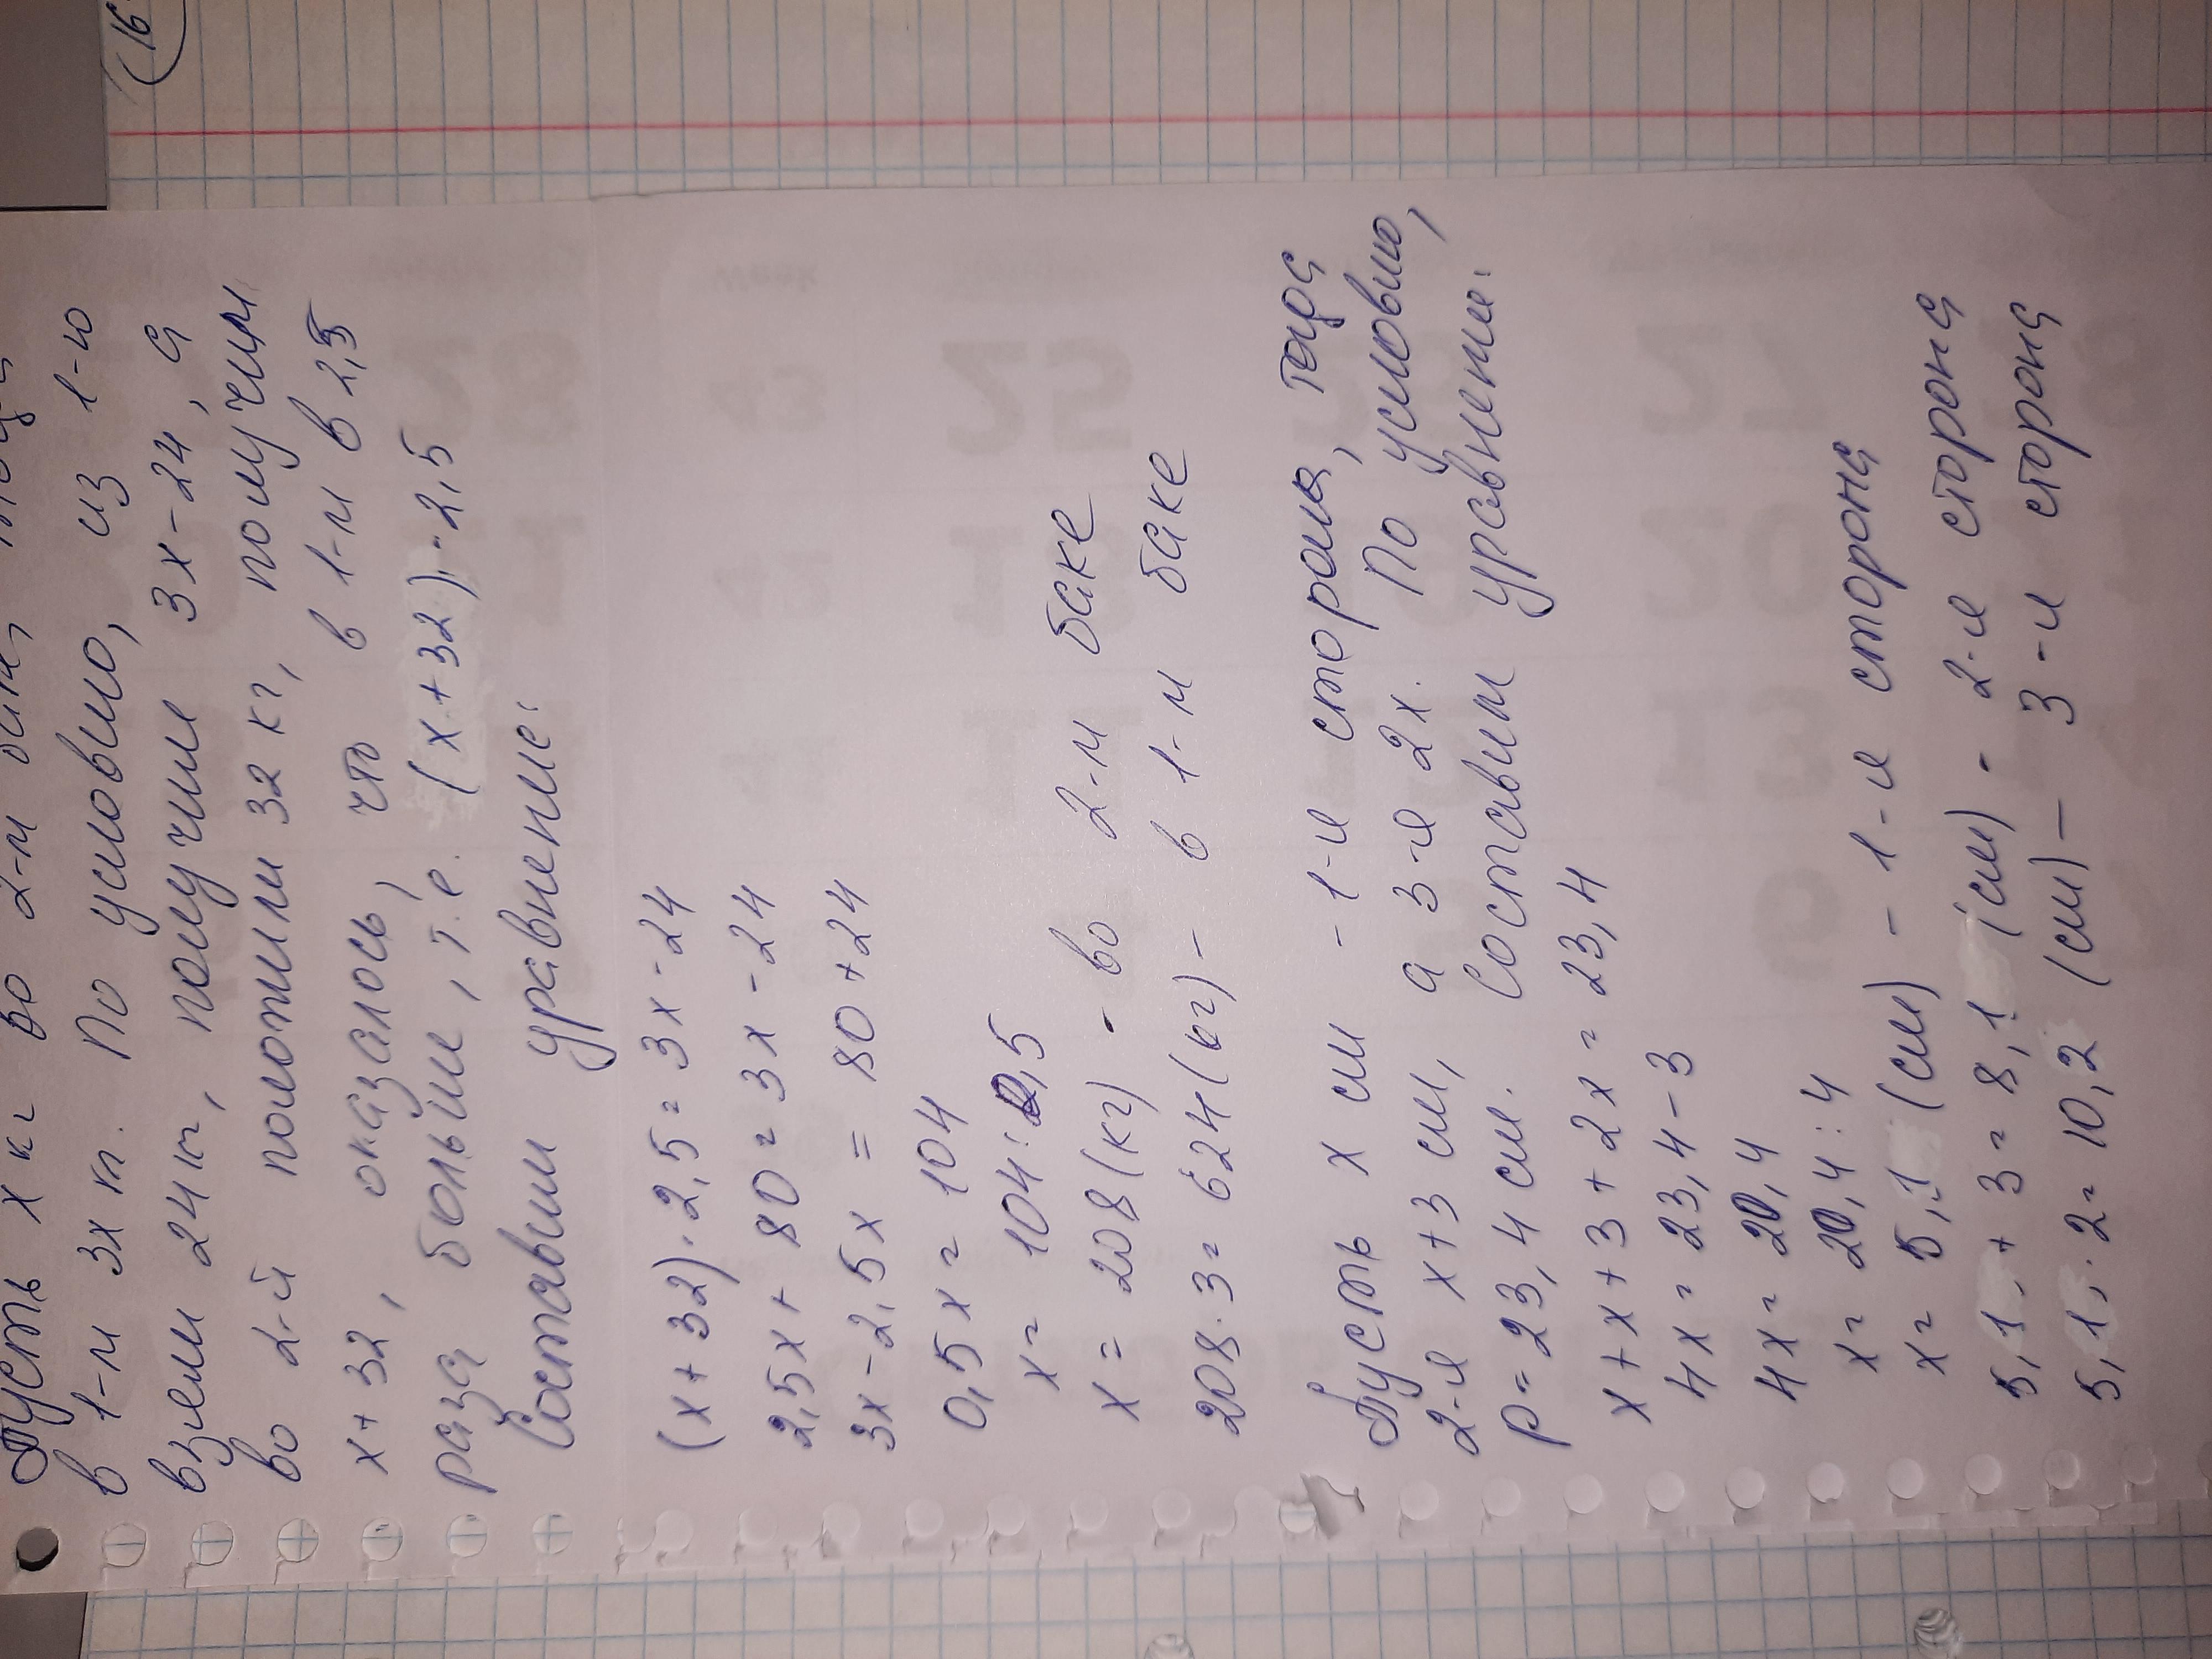 (16
Пусть x кг во 2-м баке,
в 1-м 3x кг. По условию, из 1-ю
взяли 24 кг, получили 3x-24, а
во 2-й положили 32 кг, получим
x+32, оказалось, что в 1-м в 2,5
раза больше, т.е. (x+32)·2,5
Составим уравнение:
(x+32)·2,5=3x-24
2,5x+80=3x-24
3x-2,5x=80+24
0,5x=104
x=104:0,5
x=208(кг) - во 2-м баке
208·3=624(кг)- в 1-м баке
Пусть x см - 1-я сторона, тогда
2-я x+3 см, а 3-я 2x. По условию,
P=23,4 см. Составим уравнение:
x+x+3+2x=23,4
4x=23,4-3
4x=20,4
x=20,4:4
x=5,1 (см) - 1-я сторона
5,1+3=8,1 (см) - 2-я сторона
5,1·2=10,2 (см)- 3-я сторона